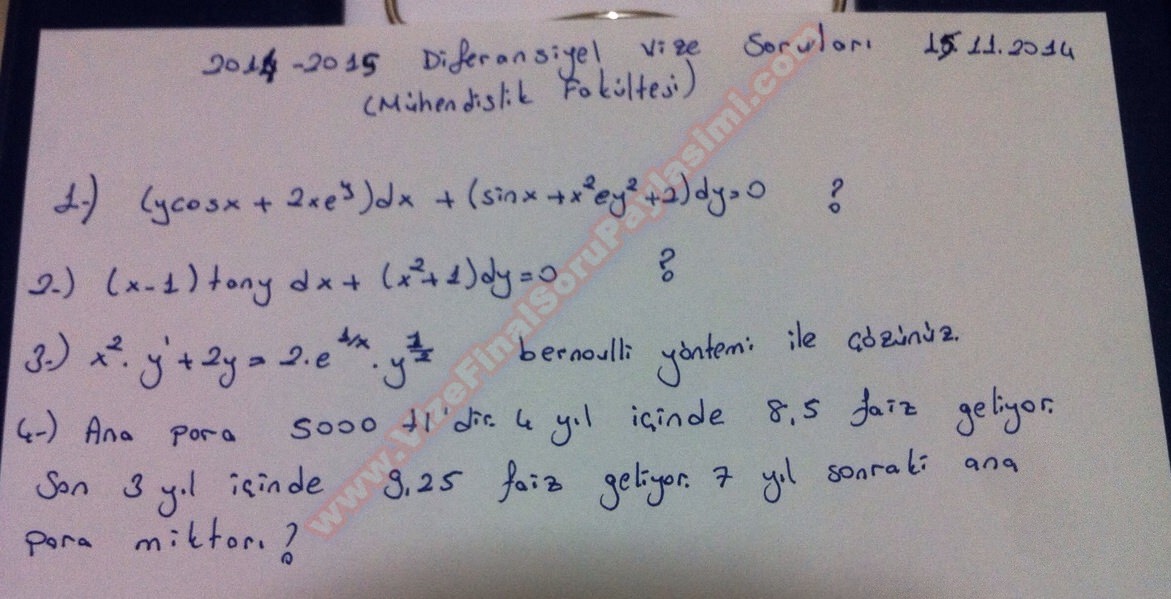 2014-2015 Diferansiyel Vize Soruları 15.11.2014
(Mühendislik Fakültesi)
1-) (ycosx + 2xe^y)dx + (sinx + x^2ey^2 + 2)dy=0 ?
2-) (x-1) tany dx + (x^2+1)dy=0 ?
3-) x^2. y' + 2y = 2.e^1/x . y^1/2 bernoulli yöntemi ile çözünüz.
4-) Ana para 5000 tl'dir. 4 yıl içinde 8,5 faiz geliyor.
Son 3 yıl içinde 9,25 faiz geliyor. 7 yıl sonraki ana
para miktarı ?
www.VizeFinalSoruPaylasimi.com